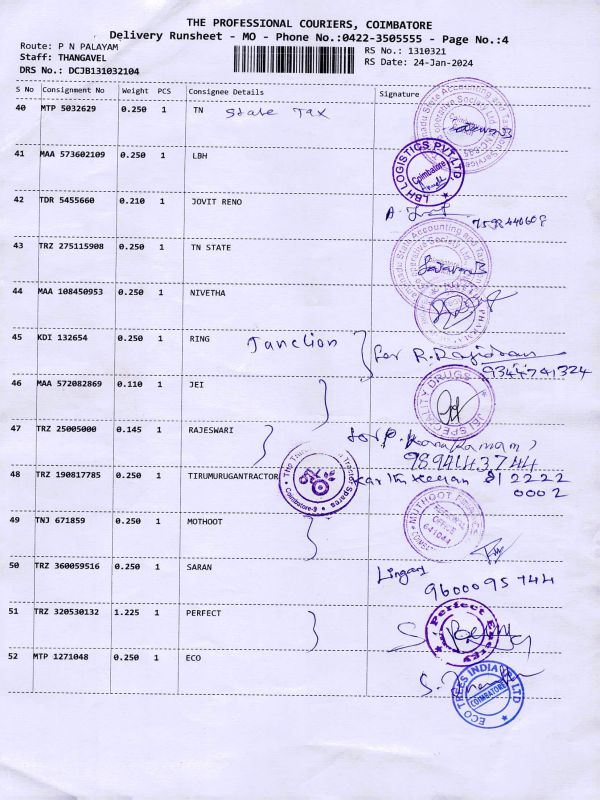 THE PROFESSIONAL COURIERS, COIMBATORE
Delivery Runsheet - MO - Phone No.:0422-3505555 - Page No.:4
Route: P N PALAYAM
RS No.: 1310321
Staff: THANGAVEL
RS Date: 24-Jan-2024
DRS No.: DCJB131032104
S No Consignment No Weight PCS Consignee Details Signature
40 MTP 5032629 0.250 1 TN State Tax
41 MAA 573602109 0.250 1 LBH
LBH LOGISTICS PVT.LTD. Coimbatore
42 TDR 5455660 0.210 1 JOVIT RENO
43 TRZ 275115908 0.250 1 TN STATE
44 MAA 108450953 0.250 1 NIVETHA
45 KDI 132654 0.250 1 RING Junction for R.
9344741324
46 MAA 572082869 0.110 1 JEI
JEI SPECIALITY DRUGS
47 TRZ 25005000 0.145 1 RAJESWARI
9894143744
48 TRZ 190817785 0.250 1 TIRUMURUGANTRACTOR
Tractor Spares Coimbatore-9
812222
0002
49 TNJ 671859 0.250 1 MOTHOOT
MUTHOOT FINANCE
641044
50 TRZ 360059516 0.250 1 SARAN
9600095744
51 TRZ 320530132 1.225 1 PERFECT
Perfect
52 MTP 1271048 0.250 1 ECO
ECO TREES INDIA PVT LTD COIMBATORE